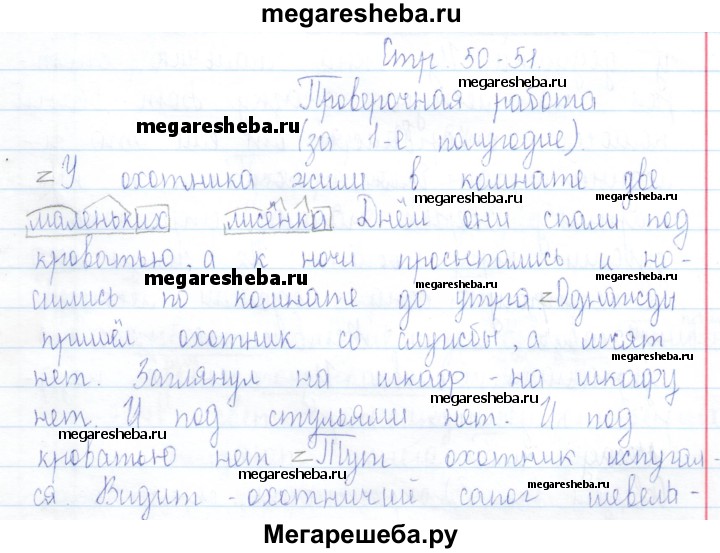 megaresheba.ru
Стр. 50-51.
megaresheba.ru
Проверочная работа
megaresheba.ru
(за 1-е полугодие).
Z У охотника жили в комнате две
megaresheba.ru
маленьких лисёнка Днём они спали под
megaresheba.ru
кроватью, а к ночи просыпались и но-
megaresheba.ru
сились по комнате до утра. Z Однажды
megaresheba.ru
пришёл охотник со службы, а лисят
megaresheba.ru
нет. Заглянул на шкаф - на шкафу
megaresheba.ru
нет. И под стульями нет. И под
megaresheba.ru
кроватью нет Z Тут охотник испугал-
megaresheba.ru
ся. Видит - охотничий сапог шевель-
megaresheba.ru
Мегарешеба.ру